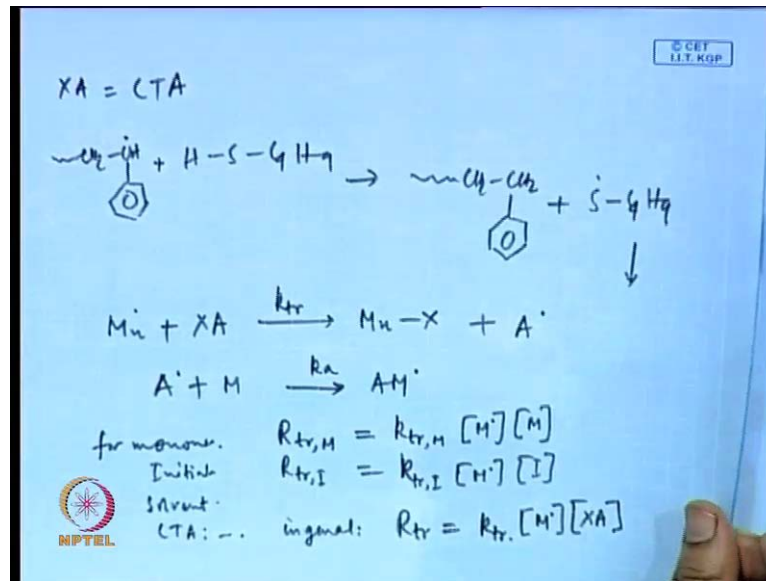 © CET
I.I.T. KGP
XA = CTA
~CH2-ĊH + H-S-C4H9 → ~CH2-CH2 + Ṡ-C4H9
Mn˙ + XA ktr → Mn-X + A˙
A˙ + M ka → AM˙
for monomer. Rtr,M = ktr,M [M˙][M]
Initiat Rtr,I = ktr,I [M˙][I]
Solvent.
CTA: -.. in general: Rtr = ktr. [M˙][XA]
NPTEL